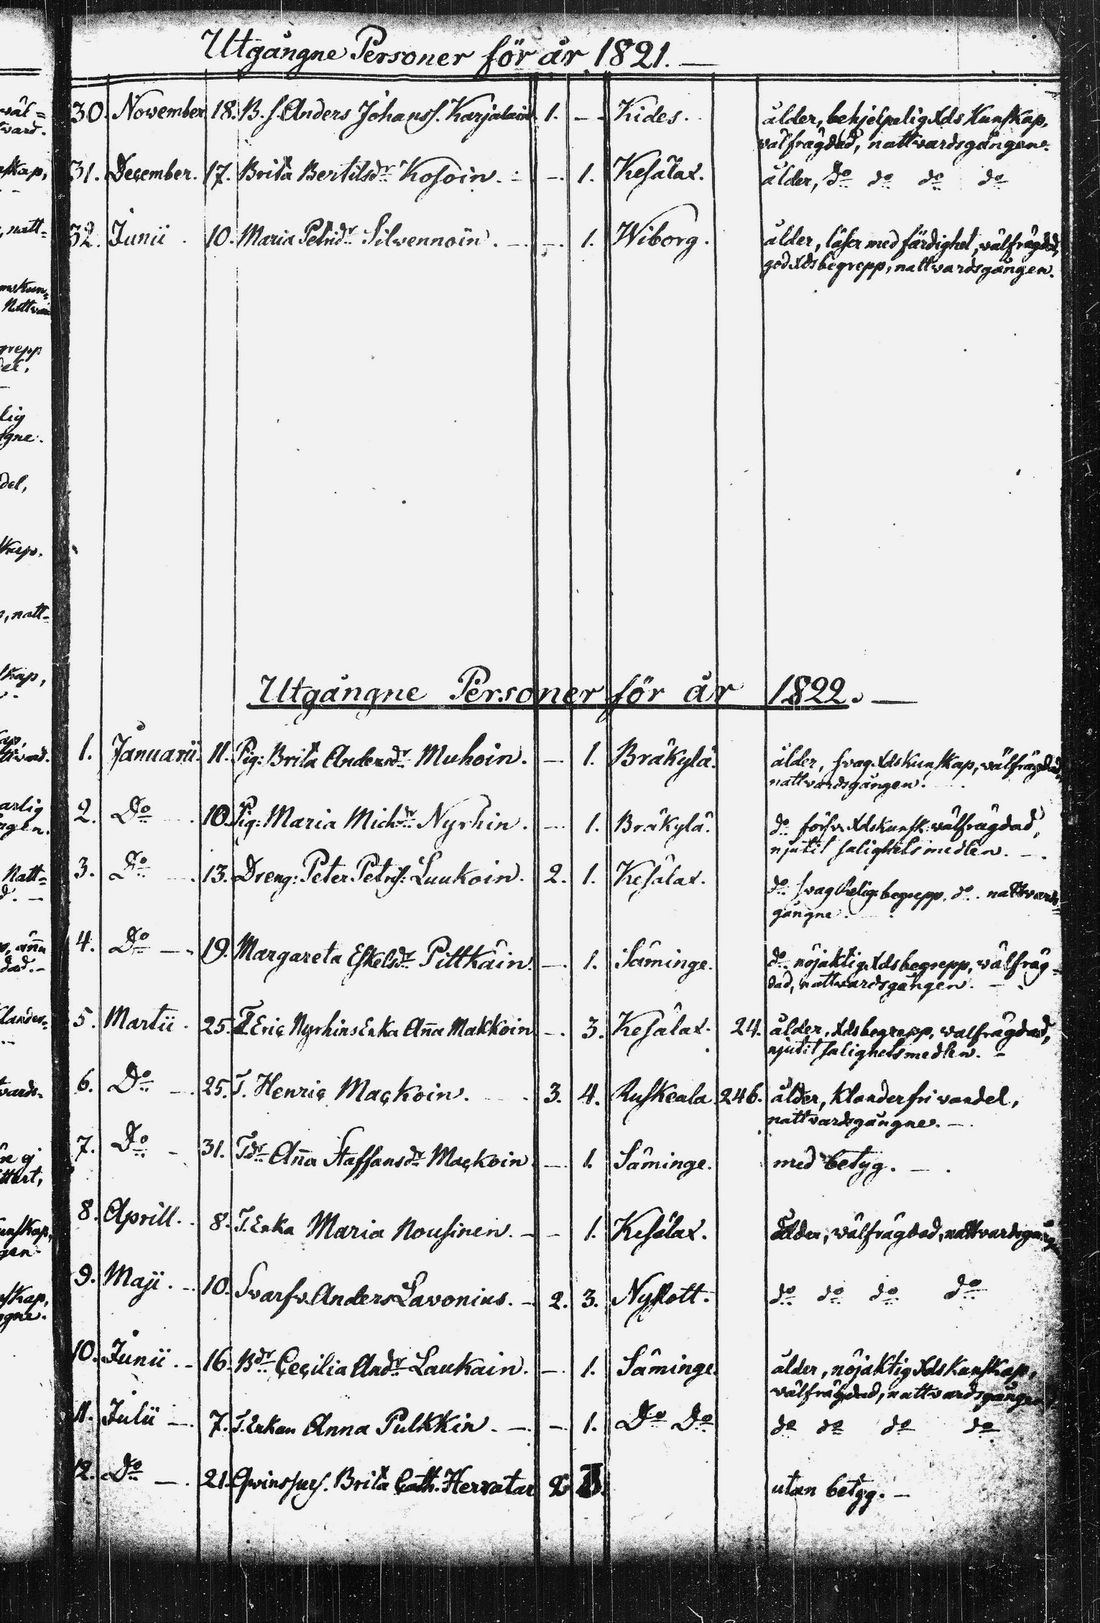 Utgångne Personer för år 1821. —
30. November 18. B. s. Anders Johanss. Karjalain 1. — Kides. ålder, behjelpelig Xds Kunskap,
välfrägdad, nattvardsgången.
31. December. 17. Brita Bertilsdr Kosoin. — 1. Kesälax. ålder, do do do do
32. Junii 10. Maria Petridr Silvennoin. — 1. Wiborg. ålder, läser med färdighet, välfrägdad,
god Xds begrepp, nattvardsgången.
Utgångne Personer för år 1822. —
1. Januarii. 11. Pig: Brita Andersdr Muhoin. — 1. Bräkylä. ålder, svag Xdskunskap, välfrägdad,
nattvardsgången.
2. Do 10. Pig: Maria Michdr Nyrhin. — 1. Bräkylä. do Xdskunsk. välfrägdad,
njutit salighetsmedlen. —
3. Do 13. Dreng: Peter Petriss: Luukoin. 2. 1. Kesälax. do svag Relig: begrepp, do nattvards-
gångne
4. Do — 19. Margareta Eskelsdr Pittkäin. — 1. Säminge. do nöjaktig Xdsbegrepp, välfräg-
dad, nattvardsgången. —
5. Martii 25. T. Eric Nyrhins Enka Anna Makkoin — 3. Kesälax. 24. ålder, Xdsbegrepp, välfrägdad,
njutit salighetsmedlen. —
6. Do 25. T. Henric Mackoin. 3. 4. Ruskeala 246. ålder, klanderfri vandel,
nattvardsgångne. —
7. Do 31. Tdr Anna Staffansdr Mackoin — 1. Säminge. med betyg. —
8. Aprill. 8. T. Enka Maria Nousinen. — 1. Kesälax. ålder, välfrägdad, nattvardsgång
9. Maji. 10. Svarfv. Anders Lavonius. — 2. 3. Nyslott. do do do do
10. Junii 16. Bdr Cecilia Andr Laukain. — 1. Säminge. ålder, nöjaktig Xdskunskap,
välfrägdad, nattvardsgången
11. Julii — 7. T. Enkan Anna Pulkkin. — 1. Do Do do do do do
12. Do — 21. Brita Cath. Hervatar 2 utan betyg. —